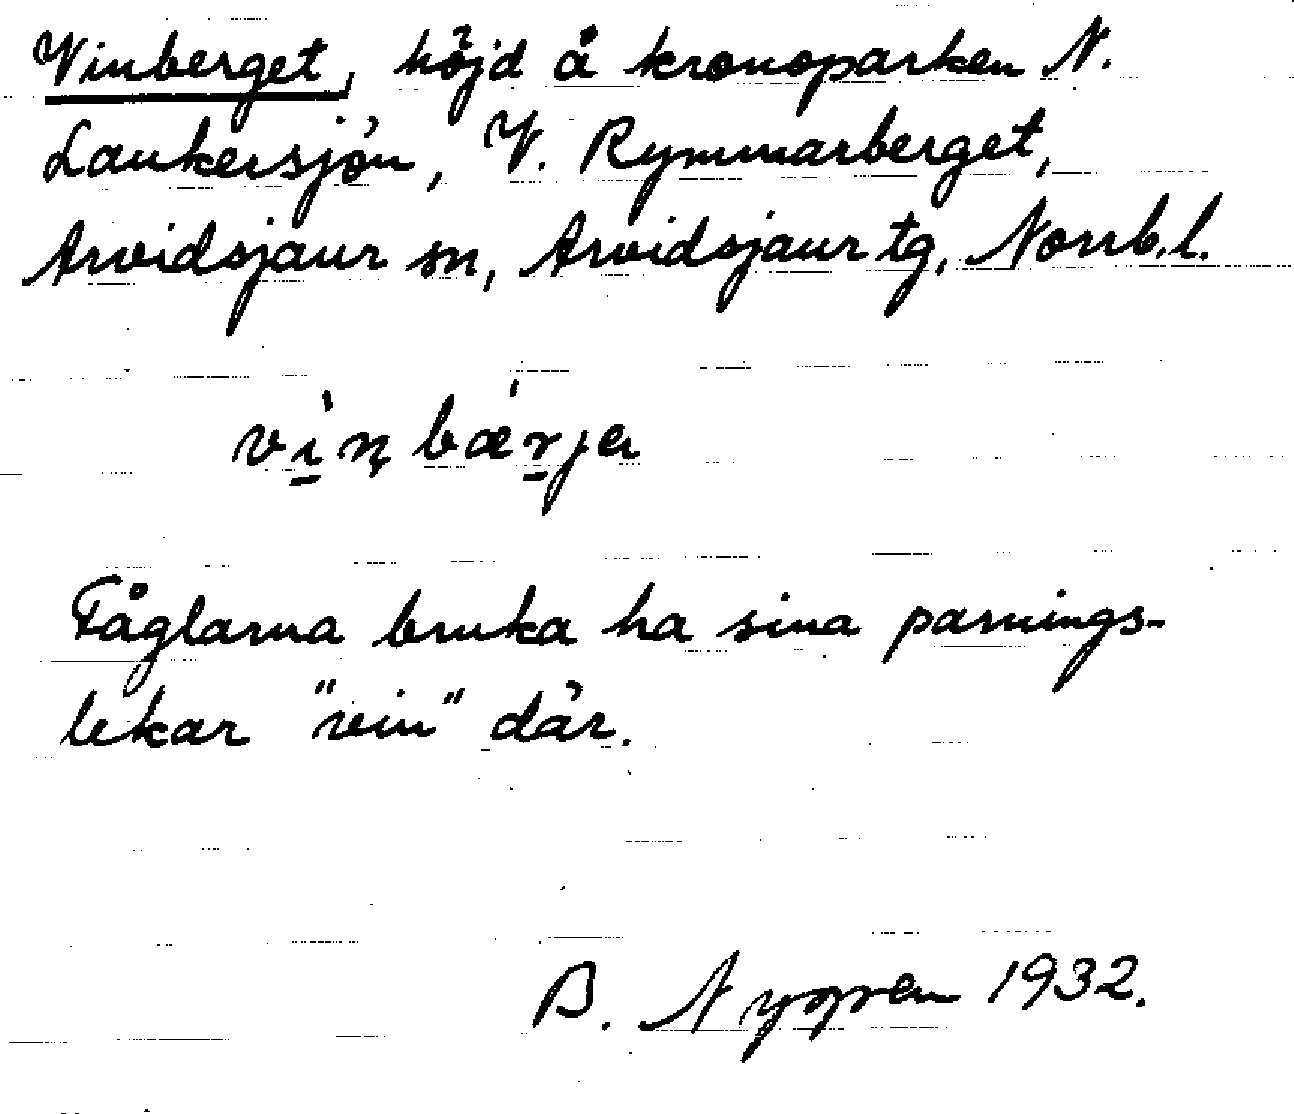 Vinberget, höjd å kronoparken N.
Laukersjön, V. Rymmarberget,
Arvidsjaur sn, Arvidsjaur tg, Norrb.l.
vì̱n̨ bǽṟjɐ
Fåglarna bruka ha sina parnings-
lekar "vin" där.
B. Nygren 1932.